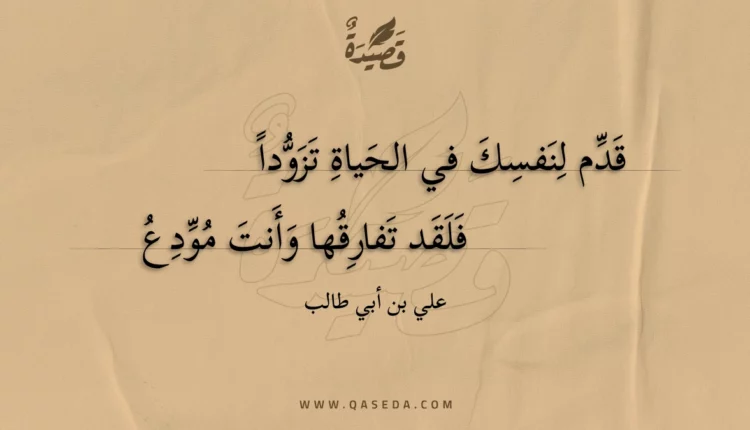 قَصِيدَةٌ
قَدِّم لِنَفسِكَ في الحَياةِ تَزَوُّداً
فَلَقَد تَفارِقُها وَأَنتَ مُوِّدِعُ
علي بن أبي طالب
WWW.QASEDA.COM